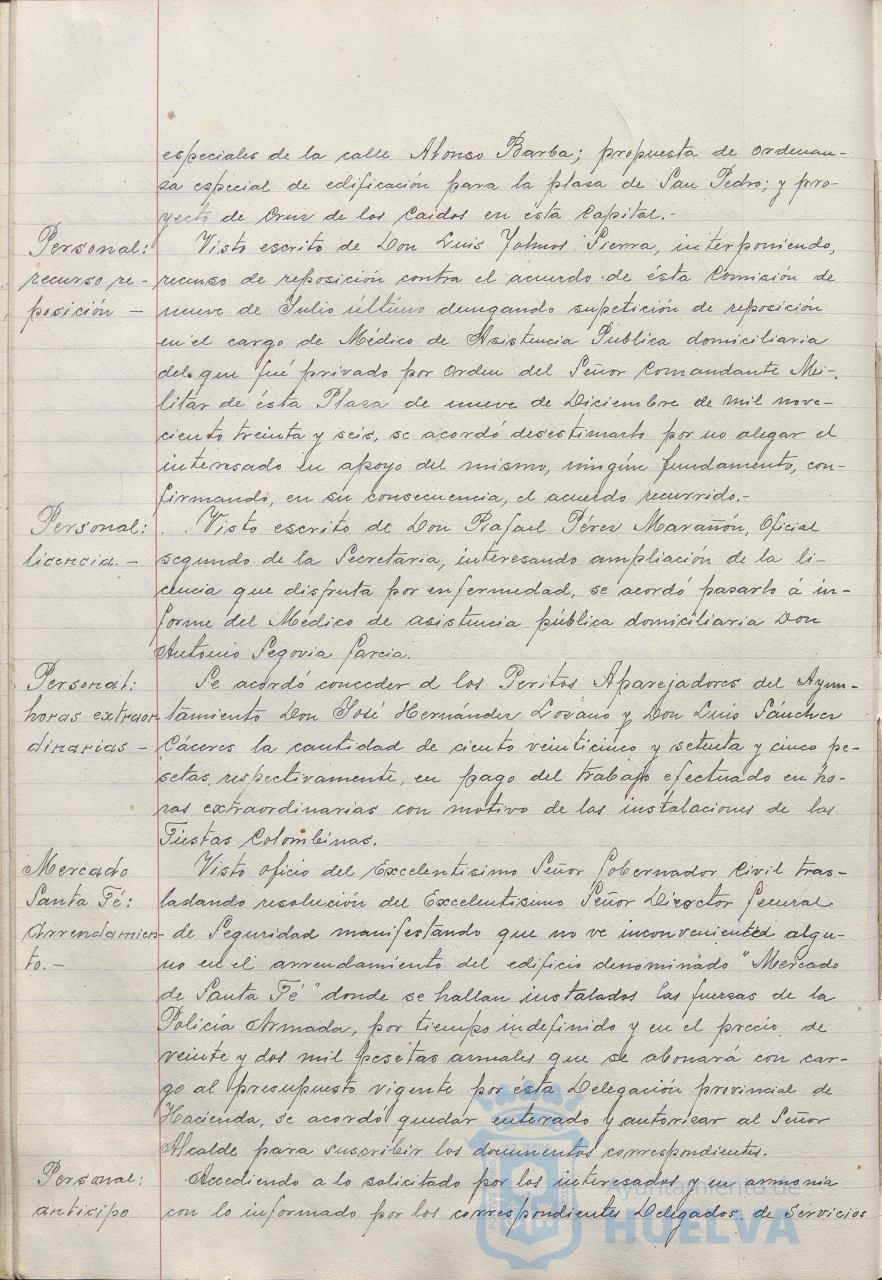 especiales de la calle Alonso Barba; propuesta de ordenan-
za especial de edificación para la plaza de San Pedro; y pro-
yecto de Cruz de los Caidos en ésta Capital.-
Personal:
recurso re-
posición —
Visto escrito de Don Luis Jolmos Sierra, interponiendo,
recurso de reposición contra el acuerdo de ésta Comisión de
nueve de Julio último denegando supetición de reposición
en el cargo de Médico de Asistencia Publica domiciliaria
del que fué privado por orden del Señor Comandante Mi-
litar de ésta Plaza de nueve de Diciembre de mil nove-
ciento treinta y seis, se acordó desestimarlo por no alegar el
interesado en apoyo del mismo, ningún fundamento, con-
firmando, en su consecuencia, el acuerdo recurrido.-
Personal:
licencia.—
Visto escrito de Don Rafael Pérez Marañón, Oficial
segundo de la Secretaria, interesando ampliación de la li-
cencia que disfruta por enfermedad, se acordó pasarlo á in-
forme del Médico de asistencia pública domiciliaria Don
Antonio Segovia Garcia.
Personal:
horas extraor-
dinarias —
Se acordó conceder á los Peritos Aparejadores del Ayun-
tamiento Don José Hernández Lozano y Don Luis Sánchez
Cáceres la cantidad de ciento veinticinco y setenta y cinco pe-
setas, respectivamente, en pago del trabajo efectuado en ho-
ras extraordinarias con motivo de las instalaciones de las
Fiestas Colombinas.
Mercado
Santa Fé:
Arrendamien-
to.—
Visto oficio del Excelentisimo Señor Gobernador Civil tras-
ladando resolución del Excelentisimo Señor Director General
de Seguridad manifestando que no ve inconveniente algu-
no en el arrendamiento del edificio denominado "Mercado
de Santa Fé" donde se hallan instalados las fuerzas de la
Policía Armada, por tiempo indefinido y en el precio de
veinte y dos mil pesetas anuales que se abonará con car-
go al presupuesto vigente por ésta Delegación provincial de
Hacienda, se acordó quedar enterado y autorizar al Señor
Alcalde para suscribir los documentos correspondientes.
Personal:
anticipo
Accediendo a lo solicitado por los interesados y en armonia
con lo informado por los correspondientes Delegados de Servicios
Ayuntamiento de
HUELVA